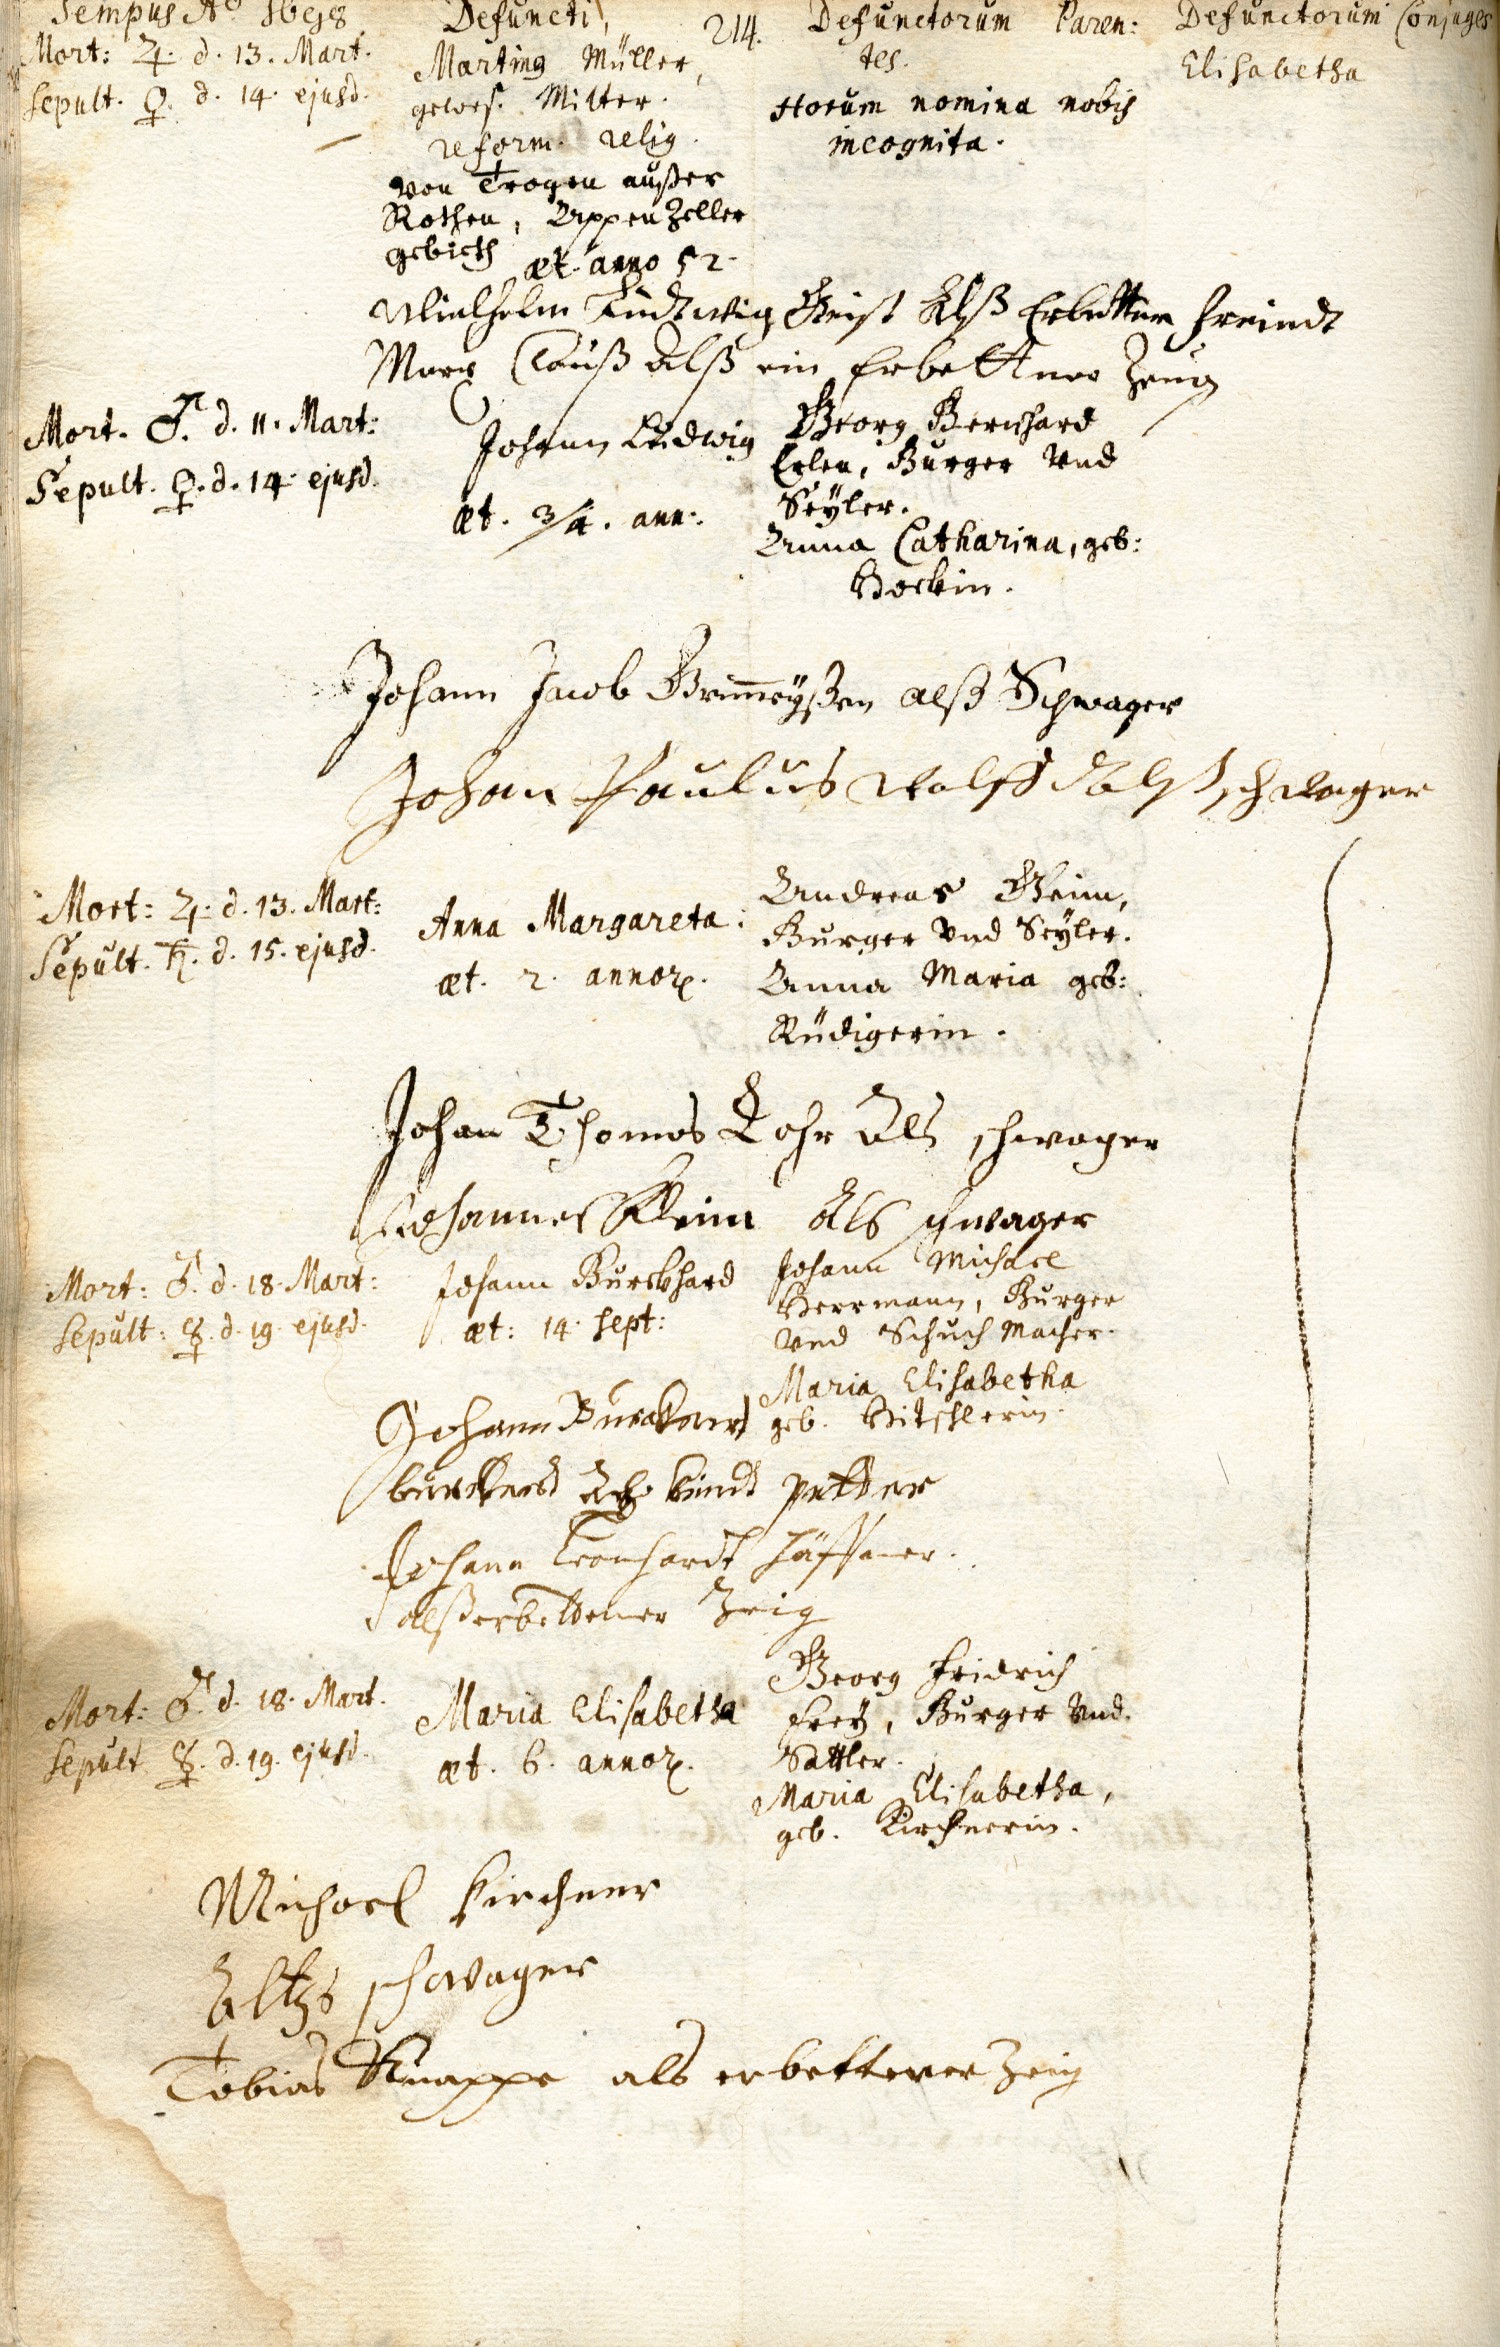 Tempus Aº 1698
Defuncti,
214.
Defunctorum Paren:
tes.
Defunctorum Conjuges
Mort: ♃. d. 13. Mart.
Sepult. ♀. d. 14. ejusd.
Marting Müller,
gewes. Mitter.
reform. relig.
von Trogen außer
Rothen, Appenzeller
gebieth æt. anno 52.
Horum nomina nobis
incognita.
Elisabetha
Wilhelm Ludtwig Geist Alß Erbettner freindt
Marx Clauß alß ein Erbettner Zeug
Mort. ♂. d. 11. Mart:
Sepult. ♀. d. 14. ejusd.
Johann Ludwig
æt. 3/4. ann:
Georg Bernhard
Erlen, Burger und
Seyler.
Anna Catharina, geb:
Bockin.
Johann Jacob alß Schwager
Johan Paulus Wolff alß schwager
Mort: ♃. d. 13. Mart:
Sepult. ♄. d. 15. ejusd.
Anna Margareta:
æt. 2. annoꝝ.
Andreas Heim,
Burger und Seyler.
Anna Maria geb:
Rüdigerin.
Johan Thomas Lohr als schwager
Johannes als schwager
Mort: ♂. d. 18. Mart:
Sepult: ☿. d. 19. ejusd.
Johann Burckhard
æt: 14. sept:
Johann Michael
Herrmann, Burger
und Schuch Macher.
Maria Elisabetha
geb. Bitschlerin.
Johann Burckhard
burckhard kindt petter
Johann Leonhardt Häffner.
alß erbettener Zeig
Mort: ♂. d. 18. Mart.
Sepult ☿. d. 19. ejusd.
Maria Elisabetha
æt. 6. annoꝝ.
Georg Fridrich
Frey, Burger und
Sattler.
Maria Elisabetha,
geb. Kirchnerin.
Michael Kirchner
schwager
Tobias Knappe als erbettener Zeig